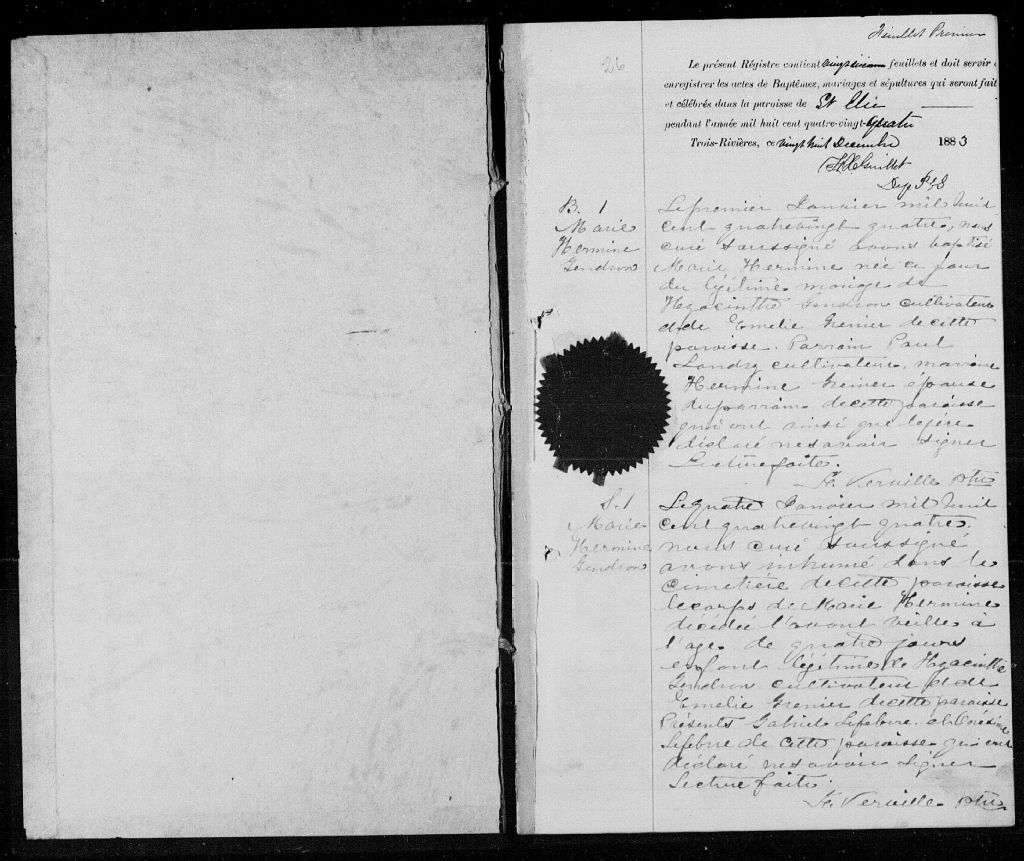 Feuillet Premier
26
Le présent Régistre contient feuillets et doit servir
enregistrer les actes de Baptêmes, mariages et sépultures qui seront fait
et célébrés dans la paroisse de St Elie
pendant l'année mil huit cent quatre-vingt-quatre
Trois-Rivières, ce vingt huit Decembre 1883
Guillet
Dep
B. 1
Marie
Hermine
Gendron
Le premier Janvier mil huit
cent quatrevingt quatre, nous
curé soussigné avons baptisé
Marie Hermine née ce jour
du légitime mariage de
Hyacinthe Gendron cultivateur
et de Emelie Grenier de cette
paroisse. Parrain Paul
Landry cultivateur, marraine
Hermine Grenier épouse
du parrain de cette paroisse
qui ont ainsi que le père
déclaré ne savoir signer
Lecture faite.
Verville ptre
S. 1
Marie
Hermine
Gendron
Le quatre Janvier mil huit
cent quatrevingt quatre,
nous curé soussigné
avons inhumé dans le
cimetière de cette paroisse
le corps de Marie Hermine
décédée l'avant veille à
l'age de quatre jours
enfant légitime de Hyacinthe
Gendron cultivateur et de
Emelie Grenier de cette paroisse
Présents Gabriel Lefebvre et
Lefebvre de cette paroisse qui ont
déclaré ne savoir signer
Lecture faite.
Verville ptre